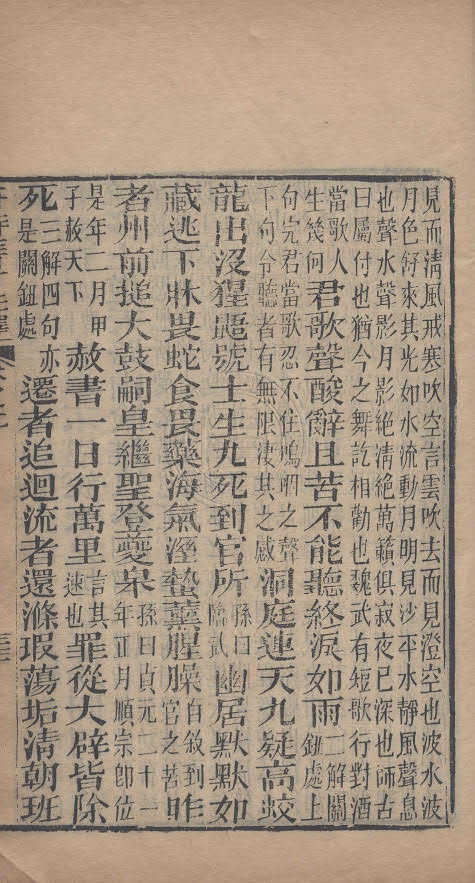 見而清風戒寒吹空言雲吹去而見澄空也波水波
月色舒來其光如水流動月明見沙平水靜風聲息
也聲水聲影月影絶清絶萬籟俱寂夜已深也師古
曰屬付也猶今之舞訖相勸也魏武有短歌行對酒
當歌人生幾何君歌聲酸辭且苦不能聽終淚如雨二解關鈕處上
句完君當歌忍不住嗚咽之聲下句令聽者有無限淒其之感洞庭連天九疑高蛟
龍出沒猩鼯號十生九死到官所孫曰臨武幽居默默如
藏逃下牀畏蛇食畏藥海氣溼蟄薰腥臊自敘到官之苦昨
者州前搥大鼓嗣皇繼聖登夔皋孫曰貞元二十一年正月順宗即位
是年二月甲子赦天下赦書一日行萬里言其速也罪從大辟皆除
死三解四句亦是關鈕處遷者追迴流者還滌瑕蕩垢清朝班